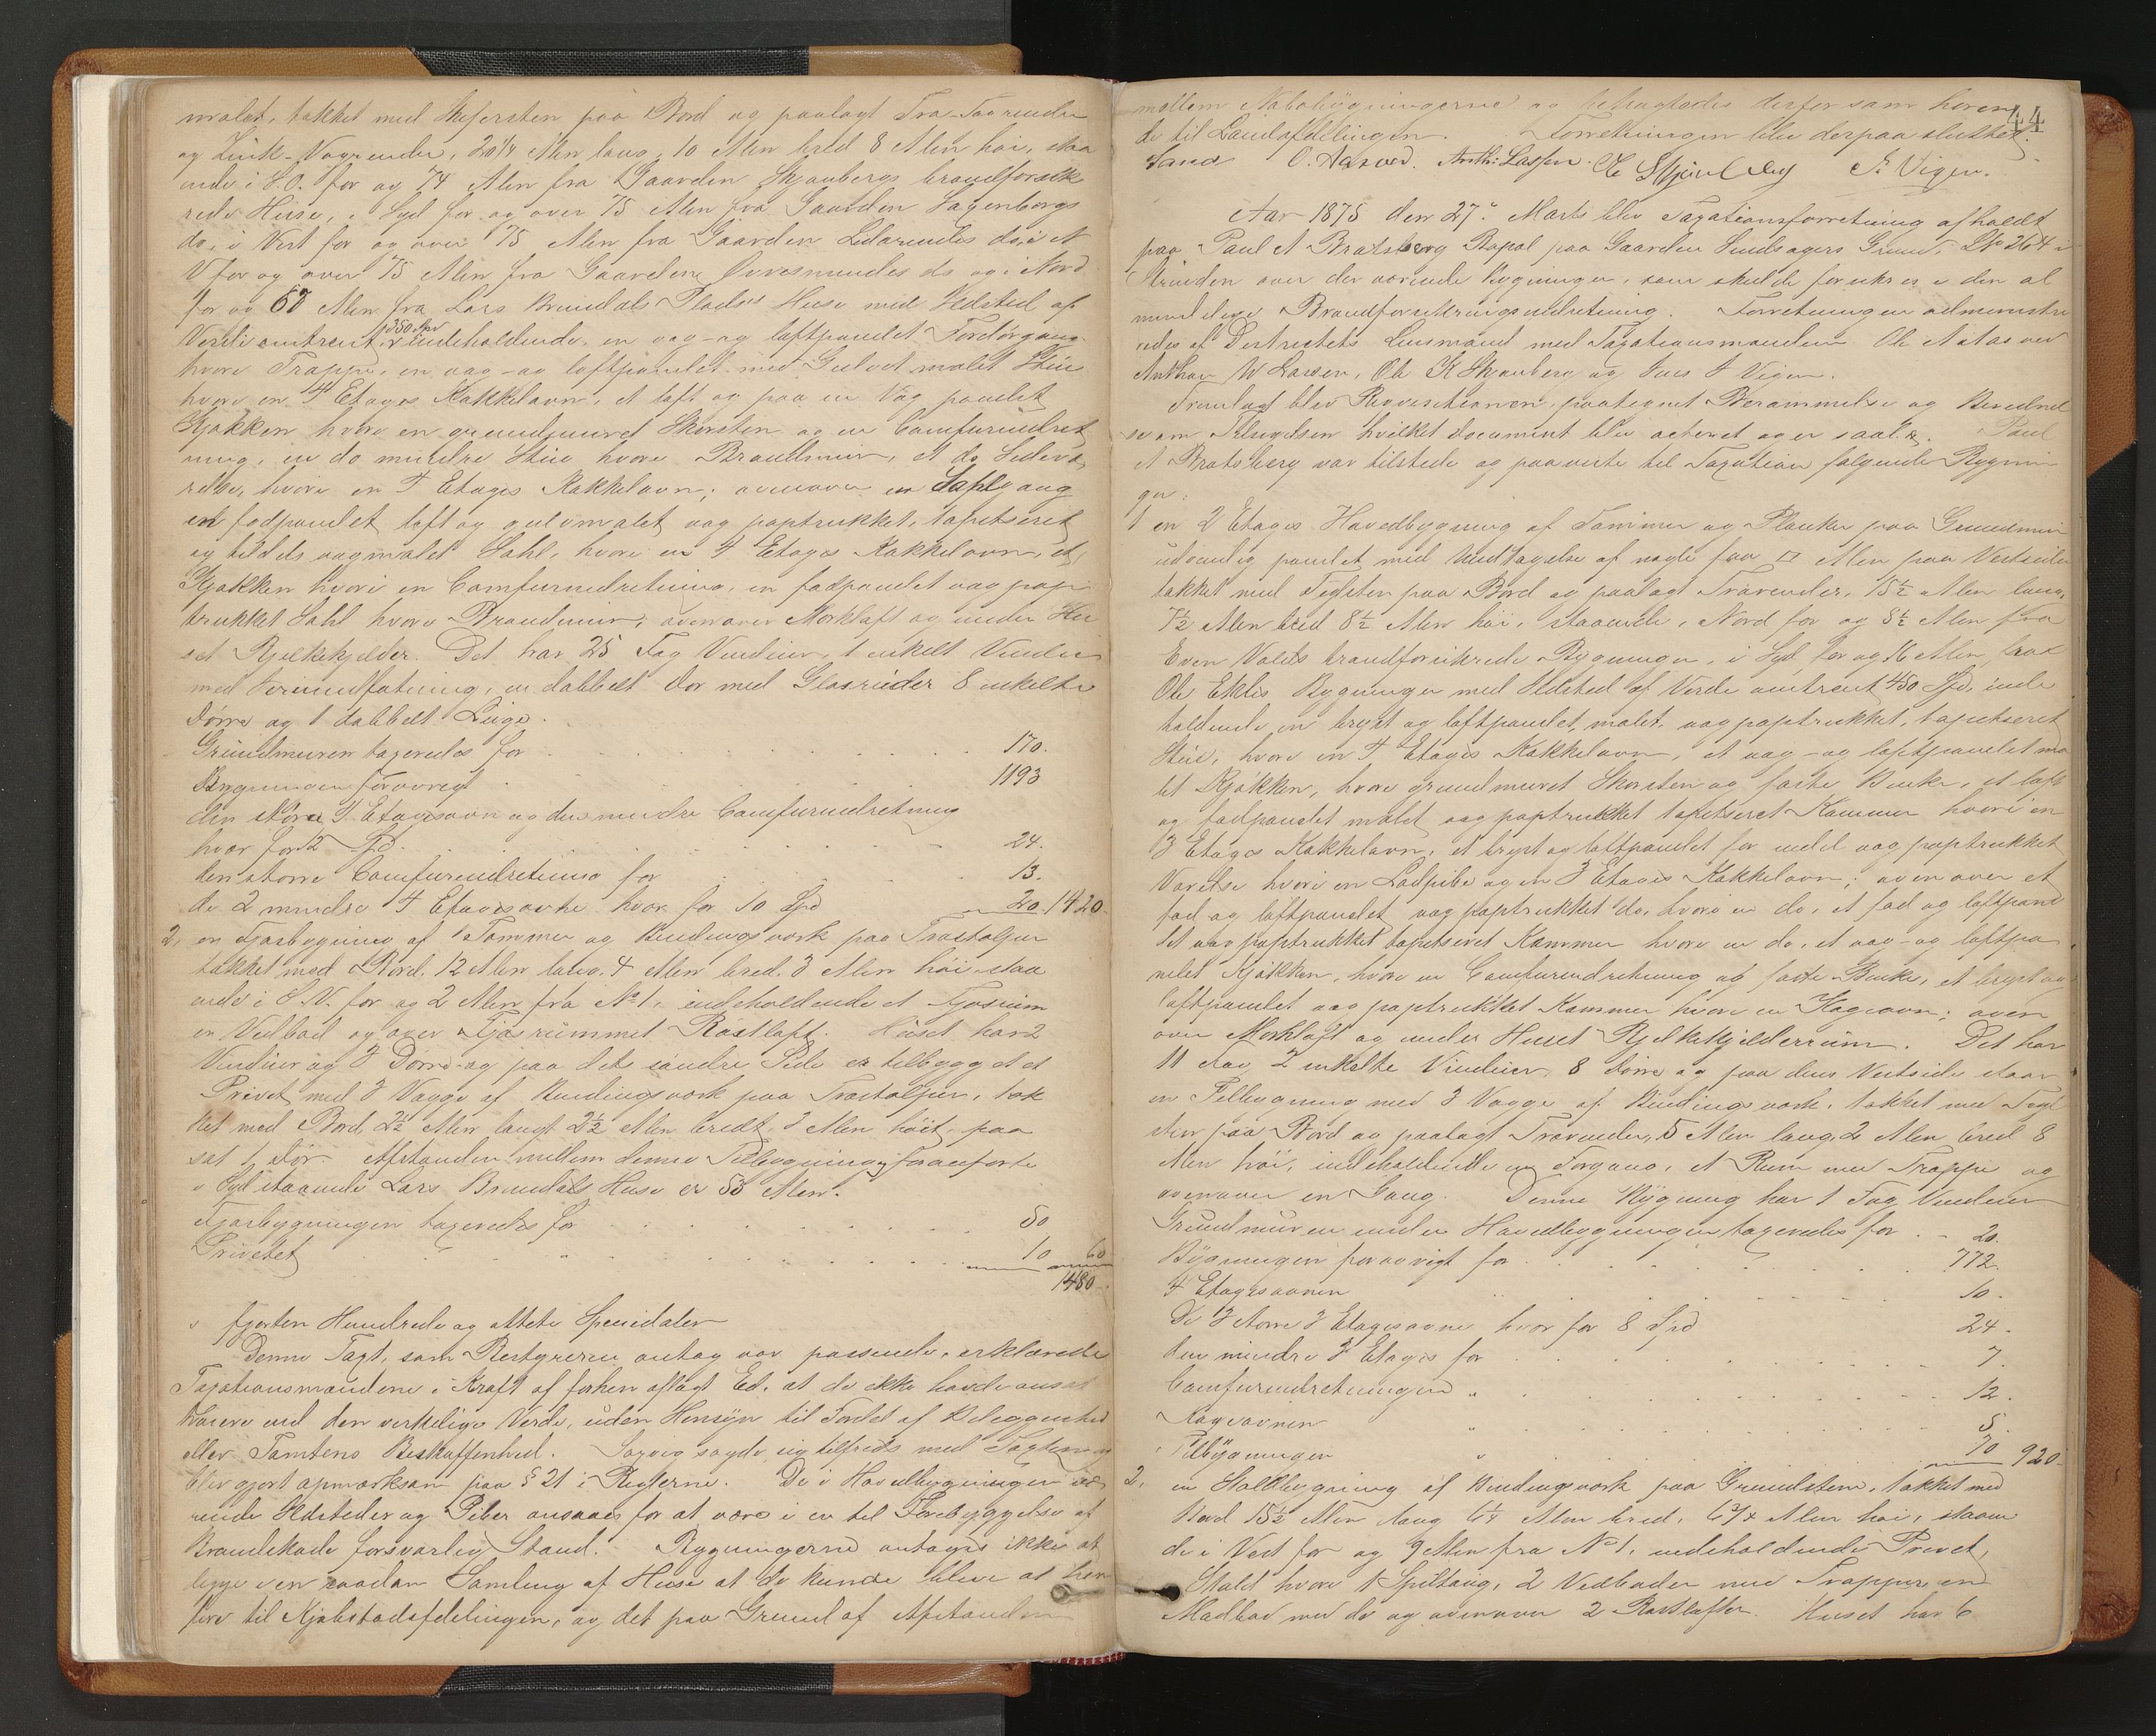 malet, tækket med Skifersten paa Bord og paalagt Træ-Tagrender
og Zink-Vagrender, 20 1/4 Alen lang, 10 Alen bred 8 Alen høi, staa
ende i S.O. for og 74 Alen fra Gaarden Skjønbergs brandforsik
rede Huse, i Syd for og over 75 Alen fra Gaarden Sagenborgs
do, i Vest for og over 75 Alen fra Gaarden do, i
V for og over 75 Alen fra Gaarden do og i Nord
for og 67 Alen fra Lars Brundals Plads's Huse med Ildsted af
Verdi omtrent 350 Spd indeholdende en væg- og loftpanelet Fordørgang
hvori Trappe, en væg- og loftpanelet med Gulvet malet Stue
hvori en 4 Etages Kakkelovn, et loft og paa en Væg panelet
Kjøkken hvori en grundmuret Skorsten og en Comfurindret
ning, en do mindre Stue hvori Brandmuur, et do Sideværelse
relse, hvori en 4 Etages Kakkelovn; ovenover en Sahlgang
en fodpanelet loft og gulvmalet væg paptrukket, tapetseret
og tildels vægmalet Sahl, hvori en 4 Etages Kakkelovn, et
Kjøkken hvori en Comfurindretning, en fodpanelet væg pap
trukket Sahl hvori Brandmuur, ovenover Mørkloft og under Hu
set Bjelkekjelder. Det har 25 Fag Vinduer, 1 enkelt Vindu
med Vinduesfatning, en dobbelt Dør med Glasruder 8 enkelte
Dørre og 1 dobbelt Luge.
Grundmuren taxeredes for 170.
Bygningen forøvrigt 1193
den større 4 Etagesovn og den mindre Comfurindretning
hver for 12 Spd. 24.
den større Comfurindretning for 13.
de 2 mindre 4 Etagesovne hver for 10 Spd 20. 1420.
2, en Fjøsbygning af Tømmer og Bindingsværk paa Træstolper
tækket med Bord, 12 Alen lang, 4 Alen bred, 3 Alen høi staa
ende i S.V. for og 2 Alen fra No 1, indeholdende et Fjøsrum
en Vedbod og over Fjøsrummet Røstloft. Huset har 2
Vinduer og 3 Dørre og paa det søndre Side er tilbygget et
Privet med 3 Vægge af Bindingsværk paa Træstolper, tæk
ket med Bord, 2 1/2 Alen langt 2 1/2 Alen bredt, 3 Alen høit, paa
sat 1 Dør. Afstanden mellem denne Tilbygning og foranførte
i Syd staaende Lars Brundals Huse er 53 Alen.
Fjøsbygningen taxeredes for 50
Privetet 10 60
1480.
fjorten Hundrede og ottete Speciedaler
Denne Taxt, som Bestyreren antog var passende, erklærede
Taxationsmændene i Kraft af forhen aflagt Ed, at de ikke havde ansat
høiere end den virkelige Verdi, uden Hensyn til Fordel af Beliggenhed
eller Tomtens Beskaffenhed. sagde sig tilfreds med Taxten og
blev gjort opmærksom paa § 21 i Reglerne. De i Hovedbygningen væ
rende Ildsteder og Piber ansaaes for at være i en til Forebyggelse af
Brandskade forsvarlig Stand. Bygningerne antages ikke at
ligge i en saadan Samling af Huse at de kunde blive at hen
føre til Kjøbstadafdelingen, og det paa Grund af Afstanden
44
mellem Nabobygningerne og betragtedes derfor som høren
de til Landafdelingen. Forretningen blev derpaa sluttet.
Sand O. Aasved. Anth: Lassen. J. Vigen.
Aar 1875 den 27de Marts blev Taxationsforretning afholdt
paa Paul A Bratsberg Bopæl paa Gaarden Grund, LNo 264 i
Strinden over der værende Bygninger, som skulde forsikres i den al
mindelige Brandforsikringsindretning. Forretningen administre
redes af Districtets Lensmand med Taxationsmændene Ole A Aasved
Anthon W Lassen, Ole K Skjønberg og Jens J Vigen.
Fremlagt blev Reqvisitionen, paategnet Berammelse og Bevidnel
se om hvilket Document blev acteret og er saal. Paul
A Bratsberg var tilstede og paaviste til Taxation følgende Bygnin
ger:
1 en 2 Etages Hovedbygning af Tømmer og Planker paa Grundmur
udvendig panelet med Undtagelse af nogle faa □ Alen paa Vestsiden
tækket med Teglsten paa Bord og paalagt Trærender, 15 1/2 Alen lang,
7 1/2 Alen bred 8 1/2 Alen høi, staaende, i Nord for og 5 1/2 Alen fra
Even Volds brandforsikrede Bygninger, i Syd for og 16 Alen fra
Ole Eklis Bygninger med Ildsted af Verdi omtrent 450 Spd, inde
holdende en bryst og loftpanelet, malet, væg paptrukket, tapetseret
Stue, hvori en 4 Etages Kakkelovn, et væg- og loftpanelet ma
let Kjøkken, hvori grundmuret Skorsten og faste Bænke, et loft
og fodpanelet malet væg paptrukket tapetseret Kammer hvori en
3 Etages Kakkelovn, et bryst og loftpanelet for endel væg paptrukket
Værelse hvori en Lodpibe og en 3 Etages Kakkelovn; ovenover et
fod og loftpanelet væg paptrukket do, hvori en do, et fod og loftpane
let væg paptrukket tapetseret Kammer hvori en do, et væg- og loftpa
nelet Kjøkken, hvori en Comfurindretning og faste Bænke, et bryst og
loftpanelet væg paptrukket Kammer hvori en Kogeovn; oven
over Mørkloft og under Huset Bjelkekjelderrum. Det har
11 Fag 2 enkelte Vinduer, 8 Dørre og paa dens Vestside staar
en Tilbygning med 3 Vægge af Bindingsværk, tækket med Tegl
sten paa Bord og paalagt Trærender, 5 Alen lang, 2 Alen bred 8
Alen høi, indeholdende en Forgang, et Rum med Trappe og
ovenover en Gang. Denne Bygning har 1 Fag Vinduer
Grundmuren under Hovedbygningen taxeredes for 20.
Bygningen forøvrigt for 772.
4 Etagesovnen 10.
De 3 større 3 Etagesovne hver for 8 Spd 24.
den mindre 3 Etages for 7.
Comfurindretningen " 12.
Kogeovnen " 5.
Tilbygningen " 70 920.
2, en Staldbygning af Bindingsværk paa Grundstene, tækket med
Bord 15 1/2 Alen lang 6 1/4 Alen bred, 6 3/4 Alen høi, staaen
de i Vest for og 9 Alen fra No 1, indeholdende Privet,
Stald hvori 1 Spiltaug, 2 Vedboder med Trappe en
Madbod med do og ovenover 2 Røstlofter. Huset har 6